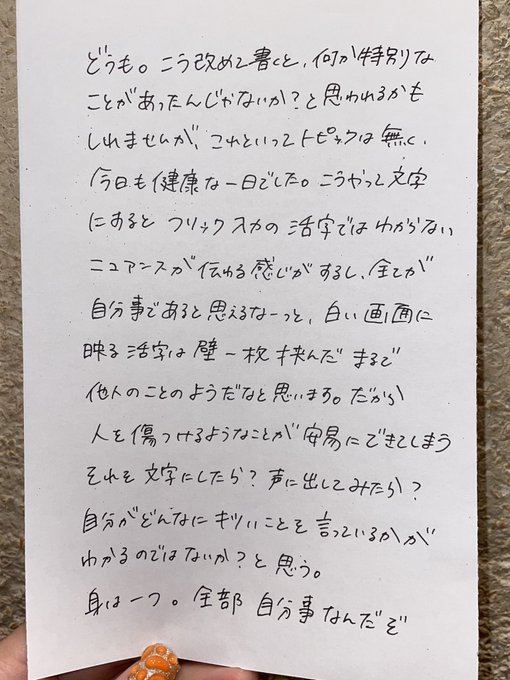 どうも。こう改めて書くと、何か特別な
ことがあったんじゃないか？と思われるかも
しれませんが、これといってトピックは無く、
今日も健康な一日でした。こうやって文字
にあると フリック入力の活字ではわからない
ニュアンスが伝わる感じがするし、全てが
自分事であると思えるなーっと、白い画面に
映る活字は壁一枚挟んだ まるで
他人のことのようだなと思います。だから
人を傷つけるようなことが安易にできてしまう
それを文字にしたら？声に出してみたら？
自分がどんなにキツいことを言っているかが
わかるのではないか？と思う。
身は一つ。全部 自分事なんだぞ